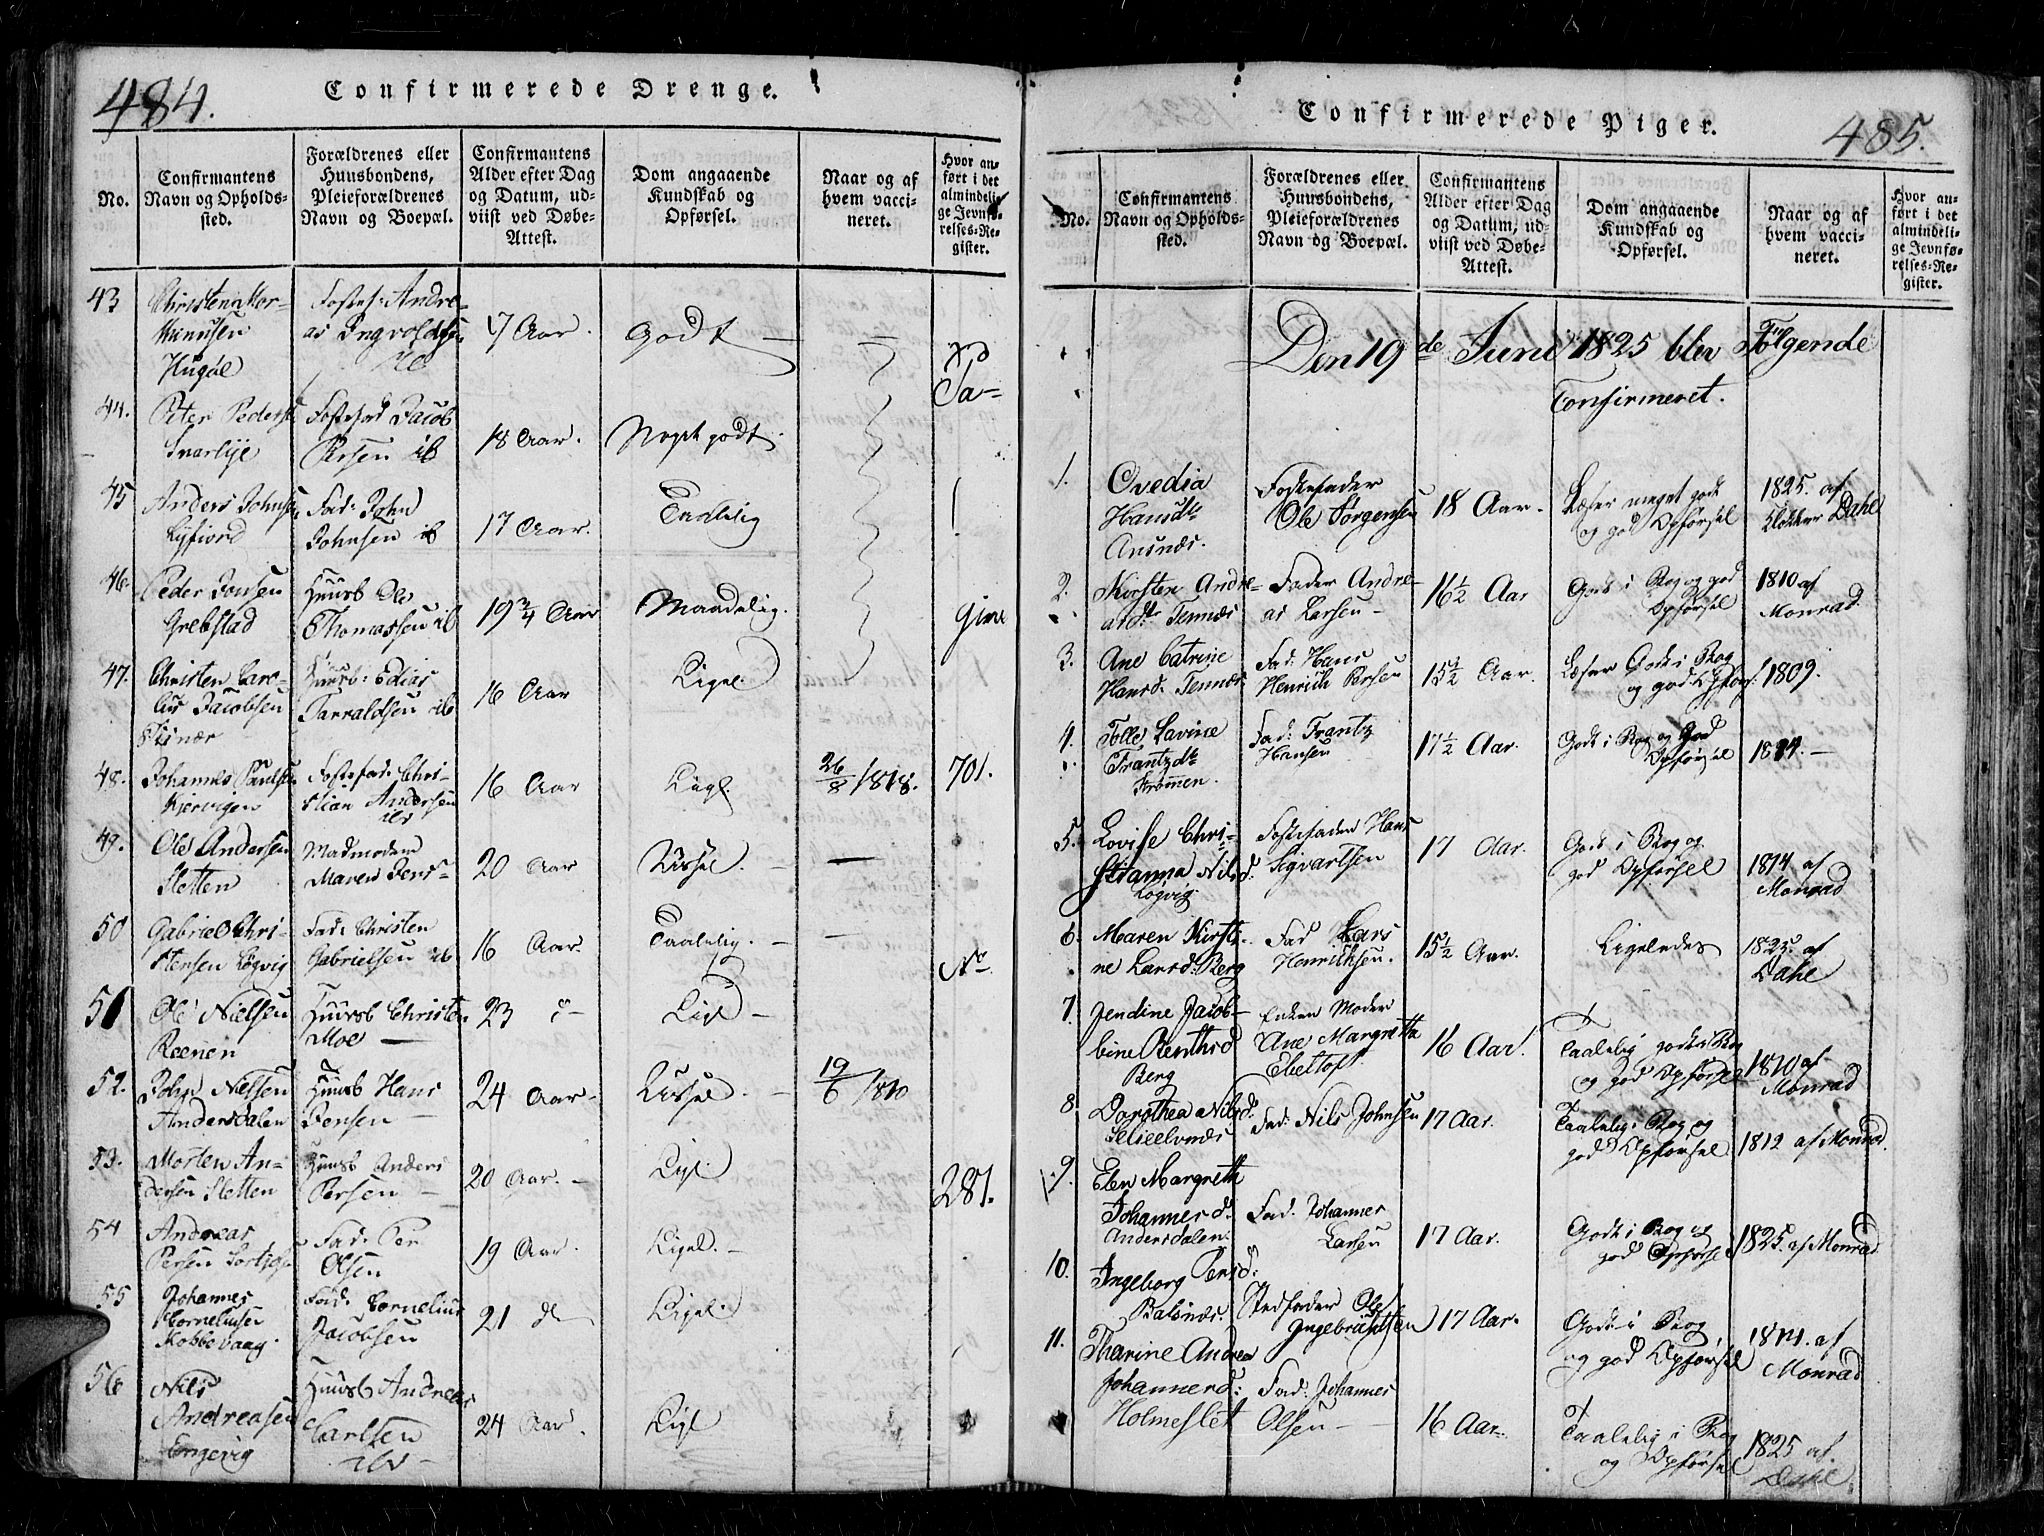 484.
Confirmerede Drenge.
No.
Confirmantens
Navn og Opholds-
sted.
Forældrenes eller
Huusbondens,
Pleieforældrenes
Navn og Boepæl.
Confirmantens
Alder efter Dag
og Datum, ud-
viist ved Døbe-
Attest.
Dom angaaende
Kundskab og
Opførsel.
Naar og af
hvem vacci-
neret.
Hvor an-
ført i det
almindeli-
ge Jevnfø-
relses-Re-
gister.
43
Christen
Hugøe
Fostef: Andre-
as Ingvoldsen
17 Aar.
Godt —
44.
Peter Peders
Snarbye
Fostefad Jacob
Persen ib
18 Aar.
Noget godt.
45
Anders Johnsen
Kyfiord
Fad: John
Johnsen ib
17 Aar.
Taalelig
46.
Peder Jonsen
Grebstad
Huusb Ole
Thomassen ib
19 3/4 Aar
Maadelig.
47.
Christen Caro-
lus Jacobsen
Huusb: Edias
Tarraldsen ib
16 Aar
Ligel.
48.
Johannes Paulsen
Kiervigen
Fostefad: Chri-
stian Andersen
ibs
16 Aar
Ligl.
26/8 1818.
701.
49.
Ole Andersen
Sletten
Madmoder
Maren Jens-
20 Aar
—
50
Gabriel Chri-
stensen Løgvig
Fad: Christen
Gabrielsen ib
16 Aar.
Taalelig. —
—
51
Ole Nielsen
Reenen
Huusb Christen
Moe —
23
Ligl —
52.
John Nielsen
Andersdalen
Huusb Hans
Jensen —
24 Aar-
19/6 1810
53.
Morten An-
dersen Sletten
Huusb Anders
Persen —
20 Aar. —
Ligl:
281.
54
Andreas
Persen
Fad: Per
Olsen
19 Aar.
Ligel. —
55
Johannes
Corneliusen
Kobbevaag.
Fad: Cornelius
Jacobsen
21 d
Ligel:
56
Nils
Andreasen
Engevig
Huusb Andreas
Carlsen
ibs —
24 Aar.
Ligl
Confirmerede Piger.
485.
No.
Confirmantens
Navn og Opholds-
sted.
Forældrenes eller
Huusbondens,
Pleieforældrenes
Navn og Boepæl.
Confirmantens
Alder efter Dag
og Datum, ud-
viist ved Døbe-
Attest.
Dom angaaende
Kundskab og
Opførsel.
Naar og af
hvem vacci-
neret.
Hvor an-
ført i det
almindeli-
ge Jevnfø-
relses-Re-
gister.
Den 19de Juni 1825 blev Følgende
Confirmeret.
1.
Ovedia
Hansdtr
Ansnæs.
Fostefader
Ole Jørgensen
18 Aar.
Læser meget godt
og god Opførsel
1825. af
Klokker Dahl
2.
Kirsten Andre-
asdtr Tennæs
Fader Andre-
as Larsen —
16½ Aar
Godt i Bog og god
Opførsel
1810 af
Monrad.
3.
Ane Catrine
Hansd. Tennæs
Fad: Hans
Henrich Persen
15½ Aar.
Læser Godt i Bog
og god Opførs:
1809.
4.
Tolle Lavine
Frantzdtr
Strømmen.
Fad: Frantz
Hansen
17½ Aar.
Godt i Bog og God
Opførsel
1814. —
5.
Lovise Chri-
stianna Nilsd.
Løgvig.
Fostefader Hans
Sigvartsen
17 Aar.
Godt i Bog og
god Opførsel
1814 af
Monrad
6.
Maren Kirsti-
ne Larsd. Berg
Fad Lars
Henrichsen.
15½ Aar.
Ligeledes
1825 af
Dahl
7.
Jendine Jacob-
bine Benthsd
Berg
Enken Moder
Ane Margretha
Ebeltoft.
16 Aar.
Taalelig godt i Bog
og god Opførsel
1810 af
Monrad
8.
Dorothea Nilsd.
Selieelvnæs
Fad: Nils Johnsen
17 Aar.
Taalelig i Bog og
god Opførsel
1812 af Monrad.
9.
Elen Margreth
Johannesd.
Andersdalen.
Fad. Johannes
Larsen
17 Aar.
Godt i Bog og
god Opførsel
1825. af Monrad
10.
Ingeborg Persd:
Balsnæs.
Stedfader Ole
Ingebrigtsen
17 Aar.
Godt i Bog
og god Opførsel
1814. af
Monrad
11.
Tharine Andrea
Johannesd:
Holmeslet
Fad: Johannes
Olsen —
16 Aar.
Taalelig i Bog
og Opførsel
1825 af.
Dahl.